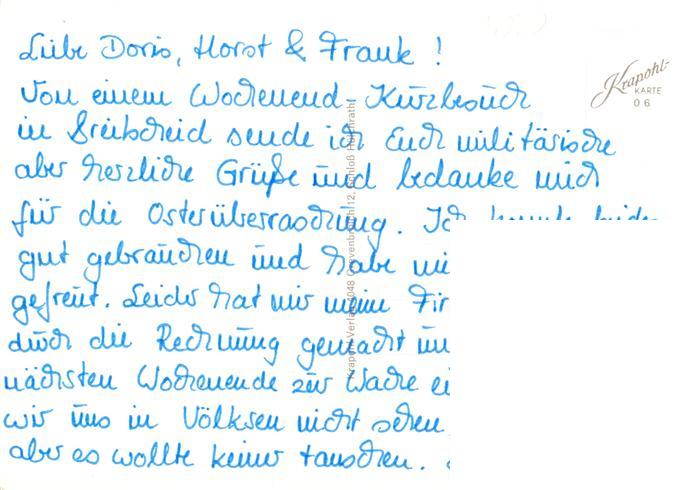 Liebe Doris, Horst & Frank!
Von einem Wochenend Kurzbesuch
in Breitscheid sende ich Euch militärische
aber herzliche Grüße und bedanke mich
für die Osterüberraschung. Ich konnte beides
gut gebrauchen und habe
gefreut. Leider hat mir meine
durch die Rechnung gemacht
nächsten Wochenende zur Wache
wir uns in Völksen nicht sehen
aber es wollte keiner tauschen.
Krapohl-
KARTE
06
Krapohl-Verlag, 4048 Grevenbroich 12, Schloß Hülchrath